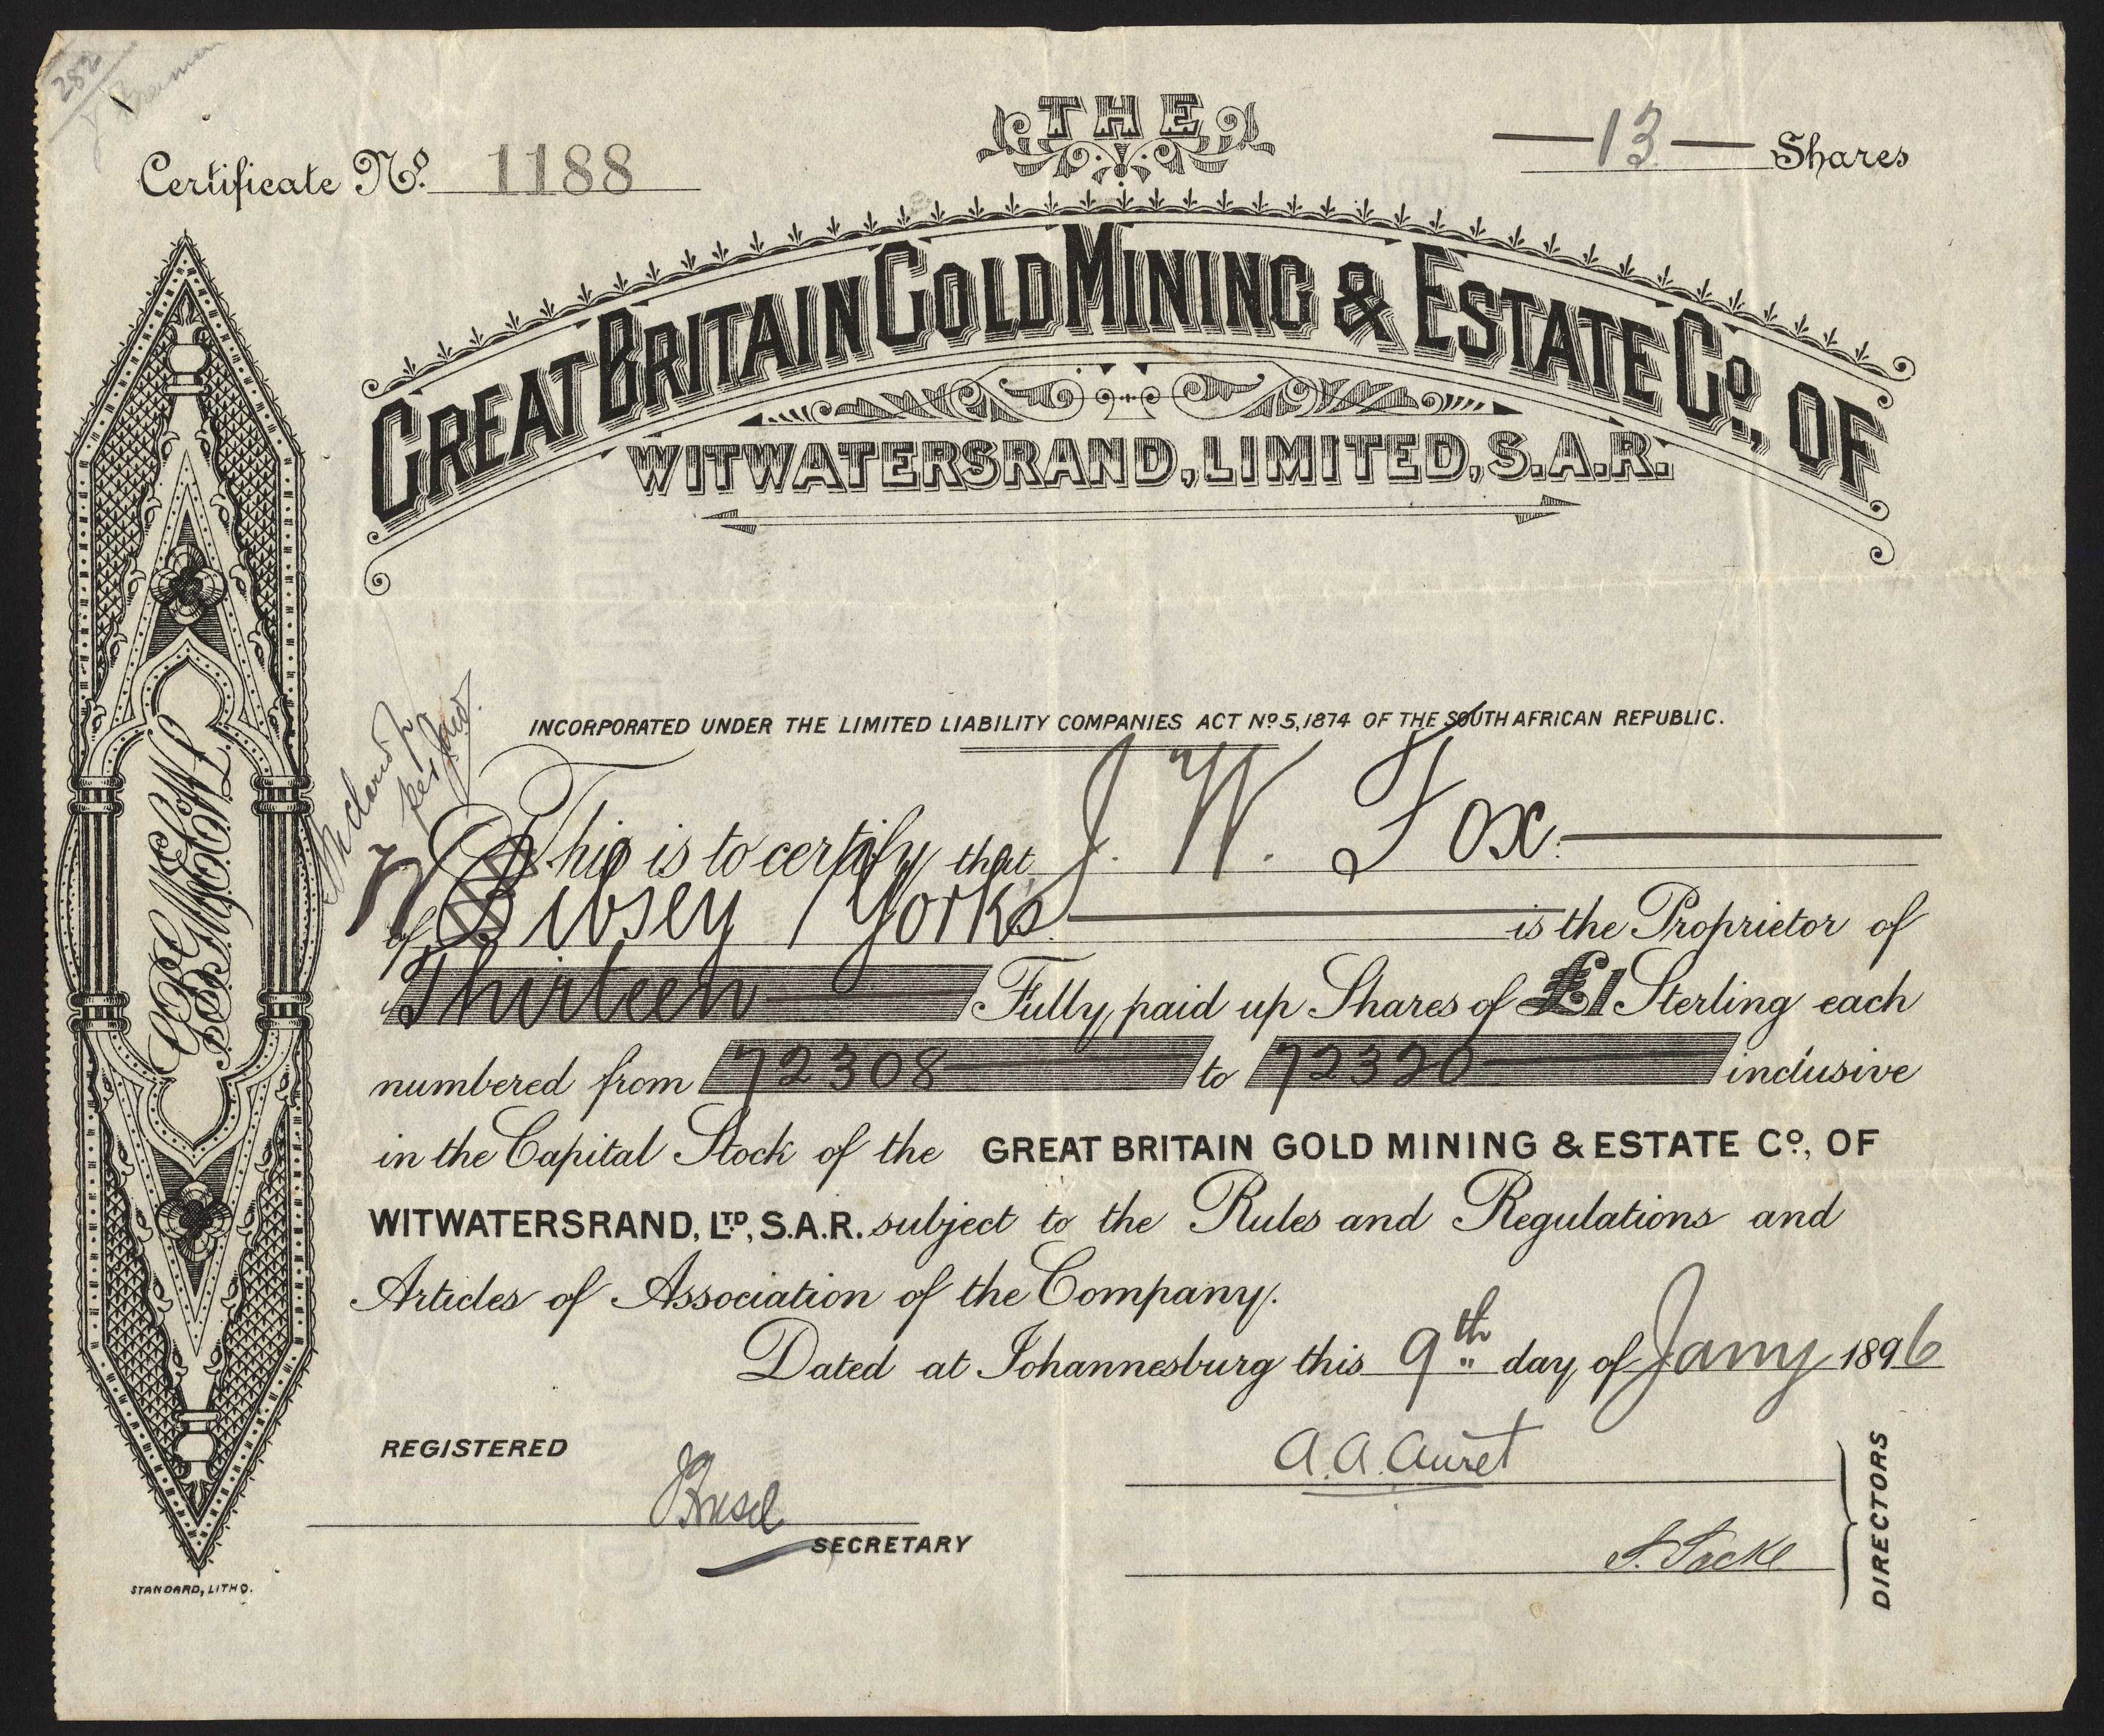 282
Certificate Nº. 1188
THE
—13— Shares
GREAT BRITAIN GOLD MINING & ESTATE Cº., OF
WITWATERSRAND, LIMITED, S.A.R.
INCORPORATED UNDER THE LIMITED LIABILITY COMPANIES ACT Nº 5, 1874 OF THE SOUTH AFRICAN REPUBLIC.
This is to certify that J. W. Fox.
of Bibsey Yorks is the Proprietor of
Thirteen Fully paid up Shares of £1 Sterling each
numbered from 72308 to 72320 inclusive
in the Capital Stock of the GREAT BRITAIN GOLD MINING & ESTATE Cº., OF
WITWATERSRAND, LTD, S.A.R. subject to the Rules and Regulations and
Articles of Association of the Company.
Dated at Johannesburg this 9th day of Jany 1896
REGISTERED
A. A. Auret
SECRETARY
S. Sacke
DIRECTORS
STANDARD, LITHO.